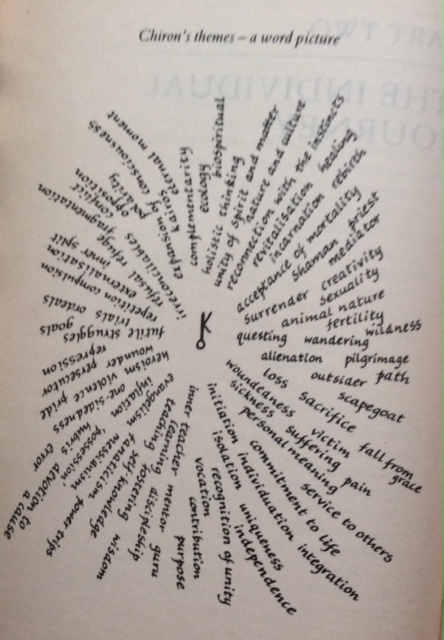 Chiron's themes – a word picture
complementarity
ecology biospiritual
holistic thinking
unity of spirit and matter
nature and culture
reconnection with the instincts
revitalisation healing
incarnation rebirth
acceptance of mortality
shaman priest
mediator
surrender creativity
sexuality
animal nature
fertility
questing wandering wildness
alienation pilgrimage
outsider path
loss scapegoat
woundedness sacrifice
victim fall from
grace
sickness suffering pain
personal meaning
service to others
initiation commitment to life
individuation integration
isolation uniqueness
independence
recognition of unity
vocation contribution
purpose
inner teacher mentor guru
teaching discipleship
learning fostering wisdom
evangelism self knowledge
fanaticism power trips
inflation messianism
'possession' devotion to
a cause
hubris error
heroism one-sidedness
violence pride
wounder persecutor
repression
futile struggles goals
trials ordeals
repetition compulsion
externalisation
inner split
refusal refuge fragmentation
conflict
opposition
irreconcilables polarity
expansion of consciousness
kairos eternal moment